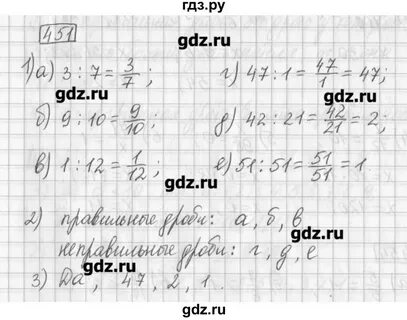 451
1) а) 3 : 7 = 3/7 ; г) 47 : 1 = 47/1 = 47;
гдз.ру
gdz.ru
б) 9 : 10 = 9/10 ; д) 42 : 21 = 42/21 = 2;
gdz.ru
в) 1 : 12 = 1/12 ; е) 51 : 51 = 51/51 = 1
gdz.ru
gdz.ru
2) правильные дроби: а, б, в
gdz.ru
неправильные дроби: г, д, е
3) Да, 47, 2, 1.
gdz.ru
gdz.ru